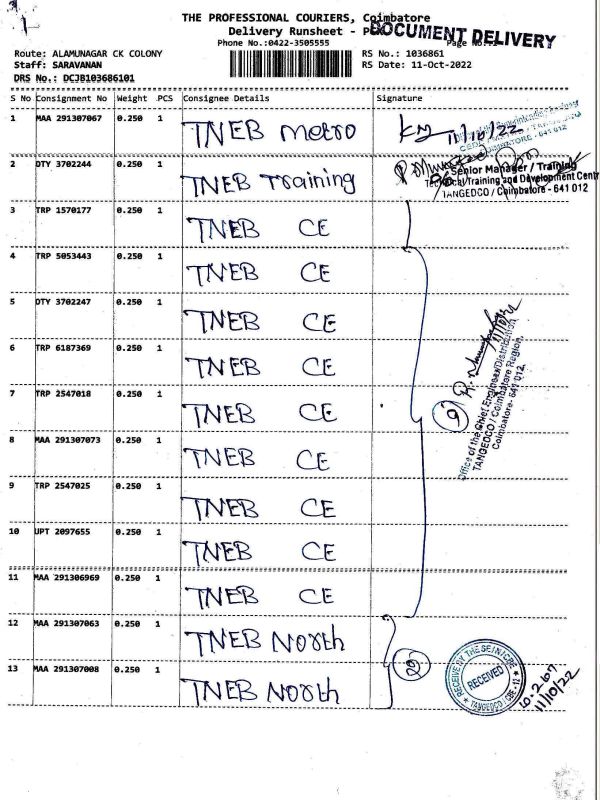 THE PROFESSIONAL COURIERS, Coimbatore
Delivery Runsheet -
DOCUMENT DELIVERY
Phone No.:0422-3505555
Page No.:
Route: ALAMUNAGAR CK COLONY
RS No.: 1036861
Staff: SARAVANAN
RS Date: 11-Oct-2022
DRS No.: DCJB103686101
S No Consignment No Weight .PCS Consignee Details Signature
1 MAA 291307067 0.250 1 TNEB metro 11/10/22
COIMBATORE - 641 012
2 DTY 3702244 0.250 1 TNEB Training
Senior Manager / Training
Technical Training and Development Centr
TANGEDCO / Coimbatore - 641 012
3 TRP 1570177 0.250 1 TNEB CE
4 TRP 5053443 0.250 1 TNEB CE
5 DTY 3702247 0.250 1 TNEB CE
6 TRP 6187369 0.250 1 TNEB CE
7 TRP 2547018 0.250 1 TNEB CE
9
11/10/22
Office of the Chief Engineer/Distribution
TANGEDCO / Coimbatore Region,
Coimbatore- 641 012.
8 MAA 291307073 0.250 1 TNEB CE
9 TRP 2547025 0.250 1 TNEB CE
10 UPT 2097655 0.250 1 TNEB CE
11 MAA 291306969 0.250 1 TNEB CE
12 MAA 291307063 0.250 1 TNEB North
13 MAA 291307008 0.250 1 TNEB North
RECEIVE BY THE SE/N/CRE
RECEIVED
TANGEDCO / CBE - 12
11/10/22